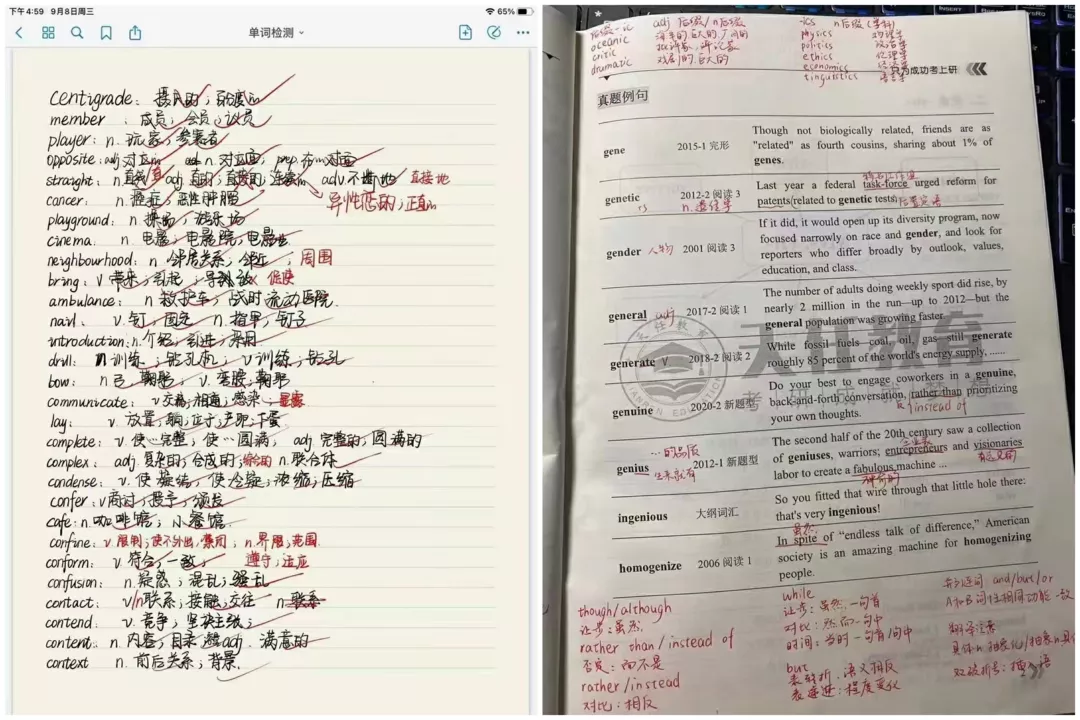 下午4:59 9月8日周三
65%
单词检测
centigrade: 摄氏的; 百度的
member : 成员; 会员; 议员
player: n. 玩家; 参赛者
opposite: adj 对立的 n. 对立面; prep. 在…对面
straight: n. 直线 adj 直的; 直接的; 连续的 adv 不断地 直接地
异性恋的; 正直的
cancer: n. 癌症; 恶性肿瘤
playground: n. 操场; 娱乐场
cinema. n. 电影; 电影院; 电影业
neighbourhood: n. 邻居关系; 邻近; 周围
bring: v 带来; 引起; 导致 促使
ambulance: n 救护车; 战时流动医院.
nail. v. 钉; 固定 n. 指甲; 钉子
introduction: n. 介绍; 引进; 采用
drill: n 训练; 钻孔机; v 训练; 钻孔
bow: n 弓; 鞠躬; v. 弯腰; 鞠躬
communicate: v 交流; 相通; 感染;
lay: v. 放置; 下蛋
complete: v. 使…完整; 使…圆满, adj 完整的; 圆满的
complex: adj. 复杂的; 合成的; 综合的 n. 联合体
condense: v. 使凝结; 使冷凝; 浓缩; 压缩
confer: v 商讨; 授予; 颁发
cafe: n. 咖啡馆; 小餐馆.
confine: v. 限制; 使不外出; n. 界限; 范围.
conform: v. 符合; 一致; 遵守; 适应
confusion: n. 疑惑; 混乱; 骚乱
contact: v/n 联系; 接触; 交往 n. 联系
contend: v. 竞争; 坚决主张;
content: n. 内容; 目录 adj. 满意的
context n. 前后关系; 背景.
后缀-ic adj 后缀/n 后缀 -ics n 后缀(学科)
oceanic 海洋的, 巨大的, 广阔的 physics 物理学
critic 批评家, 评论家 politics 政治学
dramatic 戏剧的, 巨大的 ethics 伦理学
economics 经济学 只为成功考上研
linguistics 语言学
真题例句
gene 2015-1 完形 Though not biologically related, friends are as
"related" as fourth cousins, sharing about 1% of
genes.
genetic 2012-2 阅读 3 Last year a federal task-force urged reform for
patents related to genetic tests. 后置定语
rs n. 遗传学
gender 人物 2001 阅读 3 If it did, it would open up its diversity program, now
focused narrowly on race and gender, and look for
reporters who differ broadly by outlook, values,
education, and class.
general adj 2017-2 阅读 1 The number of adults doing weekly sport did rise, by
nearly 2 million in the run—up to 2012—but the
general population was growing faster.
generate V 2018-2 阅读 2 While fossil fuels—coal, oil, gas—still generate
roughly 85 percent of the world's energy supply, ......
genuine 2020-2 新题型 Do your best to engage coworkers in a genuine,
back-and-forth conversation, rather than prioritizing
your own thoughts.
instead of
genius 2012-1 新题型 The second half of the 20th century saw a collection
…的品质
生来就有
of geniuses, warriors; entrepreneurs and visionaries
企业家
有远见的
labor to create a fabulous machine ...
神奇的
ingenious 大纲词汇 So you fitted that wire through that little hole there:
that's very ingenious!
虽然
homogenize 2006 阅读 1 In spite of "endless talk of difference," American
society is an amazing machine for homogenizing
people.
天任教育
TIANREN EDUCATION
though/although
让步: 虽然.
rather than / instead of
否定: 而不是
rather/instead
对比: 相反
while
让步: 虽然 — 句首
对比: 然而 — 句中
时间: 当时 — 句首/句中
but
表转折, 语义相反
表递进: 程度变化
并列连词 and/but/or
A和B词性相同功能一致
翻译注意
双破折号: 插入语